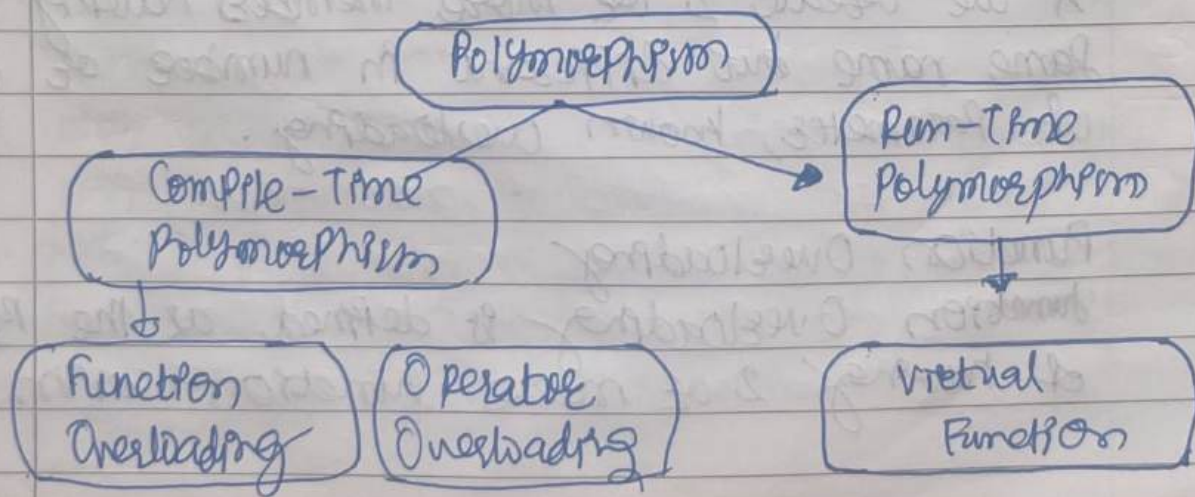 Polymorphism
Compile-Time
Polymorphism
Run-Time
Polymorphism
Function
Overloading
Operator
Overloading
Virtual
Function